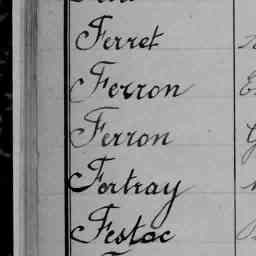 Ferret
Ferron
Ferron
Fertray
Festoc